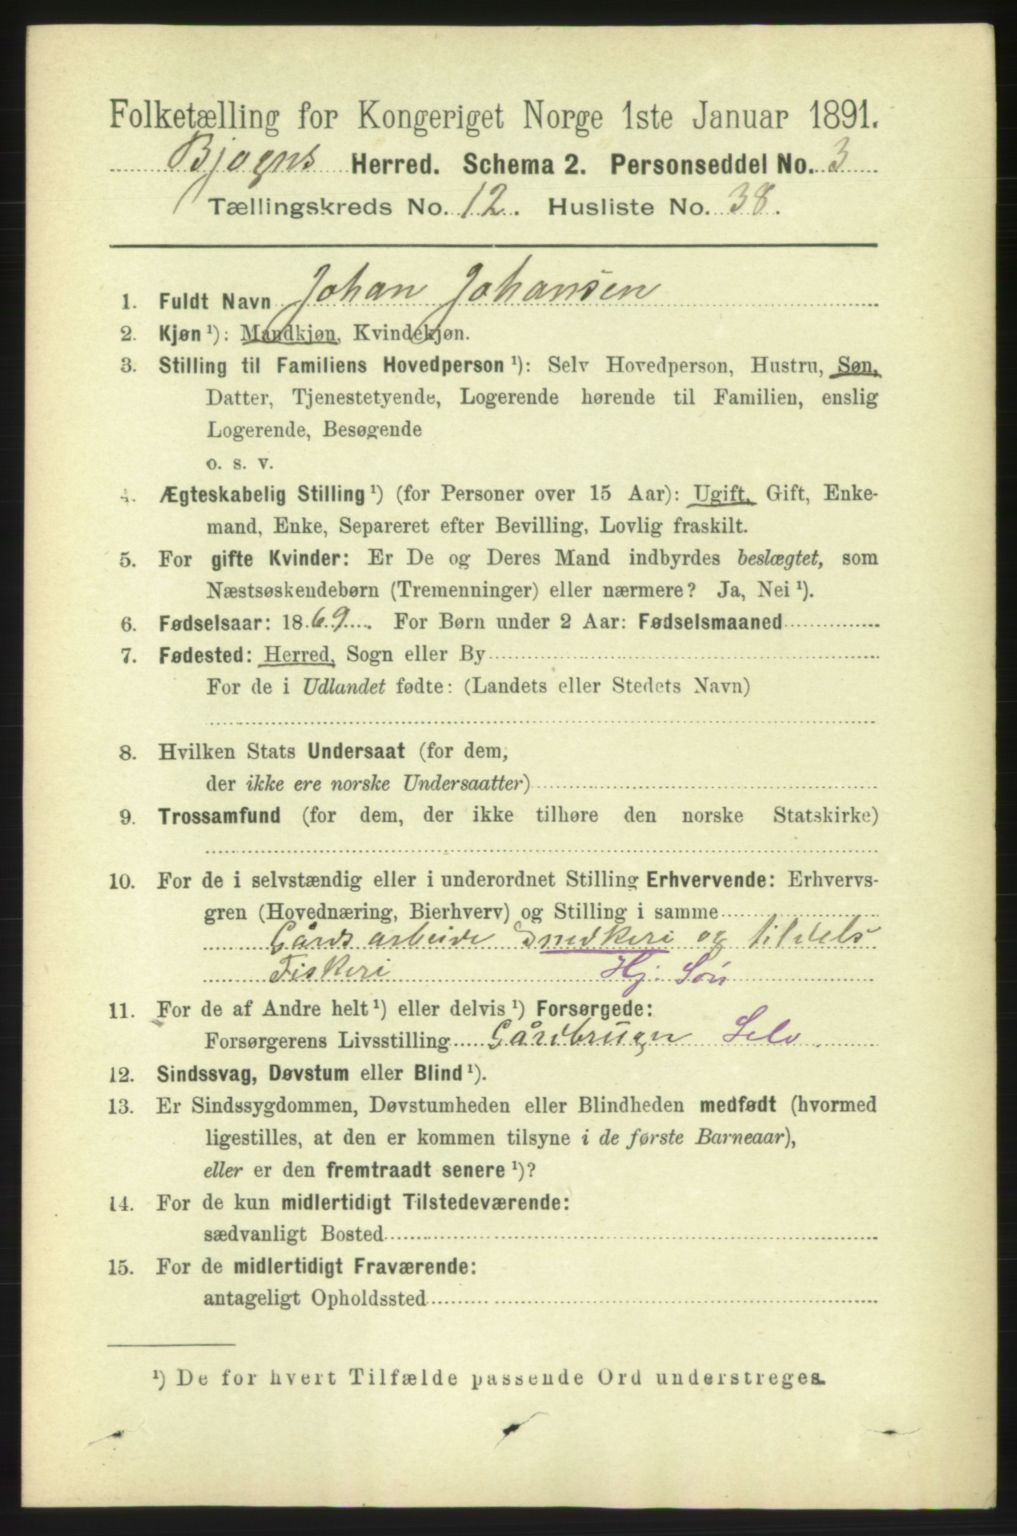 Folketælling for Kongeriget Norge 1ste Januar 1891.
Bjugns Herred. Schema 2. Personseddel No. 3
Tællingskreds No. 12. Husliste No. 38.
1. Fuldt Navn Johan Johansen
2. Kjøn ¹): Mandkjøn, Kvindekjøn.
3. Stilling til Familiens Hovedperson ¹): Selv Hovedperson, Hustru, Søn,
Datter, Tjenestetyende, Logerende hørende til Familien, enslig
Logerende, Besøgende
o. s. v.
4. Ægteskabelig Stilling ¹) (for Personer over 15 Aar): Ugift, Gift, Enke-
mand, Enke, Separeret efter Bevilling, Lovlig fraskilt.
5. For gifte Kvinder: Er De og Deres Mand indbyrdes beslægtet, som
Næstsøskendebørn (Tremenninger) eller nærmere? Ja, Nei ¹).
6. Fødselsaar: 1869. For Børn under 2 Aar: Fødselsmaaned
7. Fødested: Herred, Sogn eller By
For de i Udlandet fødte: (Landets eller Stedets Navn)
8. Hvilken Stats Undersaat (for dem,
der ikke ere norske Undersaatter)
9. Trossamfund (for dem, der ikke tilhøre den norske Statskirke)
10. For de i selvstændig eller i underordnet Stilling Erhvervende: Erhvervs-
gren (Hovednæring, Bierhverv) og Stilling i samme
Gårds arbeide Snedkeri og tildels
Fiskeri Hj. Søn
11. For de af Andre helt ¹) eller delvis ¹) Forsørgede:
Forsørgerens Livsstilling Gårdbrugn Selv.
12. Sindssvag, Døvstum eller Blind ¹).
13. Er Sindssygdommen, Døvstumheden eller Blindheden medfødt (hvormed
ligestilles, at den er kommen tilsyne i de første Barneaar),
eller er den fremtraadt senere ¹)?
14. For de kun midlertidigt Tilstedeværende:
sædvanligt Bosted
15. For de midlertidigt Fraværende:
antageligt Opholdssted
¹) De for hvert Tilfælde passende Ord understreges.